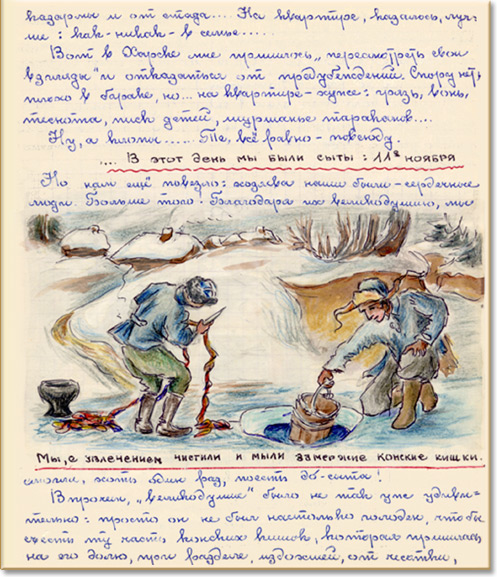 казармы и от стада.... На квартире, казалось, луч-
ше: как-никак - в семье.....
Вот в Харске мне пришлось „пересмотреть свои
взгляды" и отказаться от предубеждений. Спору нет,
плохо в бараке, но... на квартире - хуже: грязь, вонь,
теснота, писк детей, шуршанье тараканов....
Ну, а клопы...... Те, всё равно - повсюду.
.... В этот день мы были сыты: 11го ноября
Но нам ещё повезло: хозяева наши были - сердечные
люди. Больше того: благодаря их великодушию, мы
Мы, с увлечением чистили и мыли замерзшие конские кишки.
смогли, хоть один раз, поесть до-сыта!
Впрочем, „великодушие" было не так уже удиви-
тельно: просто он не был настолько голоден, чтобы
съесть ту часть конских кишок, которая пришлась
на его долю, при разделе, издохшей, от чесотки,